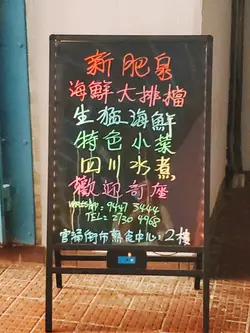 新肥泉
海鮮大排檔
生猛海鮮
特色小菜
四川水煮
歡迎訂座
WHATSAPP: 9447 3444
TEL: 2730 4968
官涌街市熟食中心: 2樓